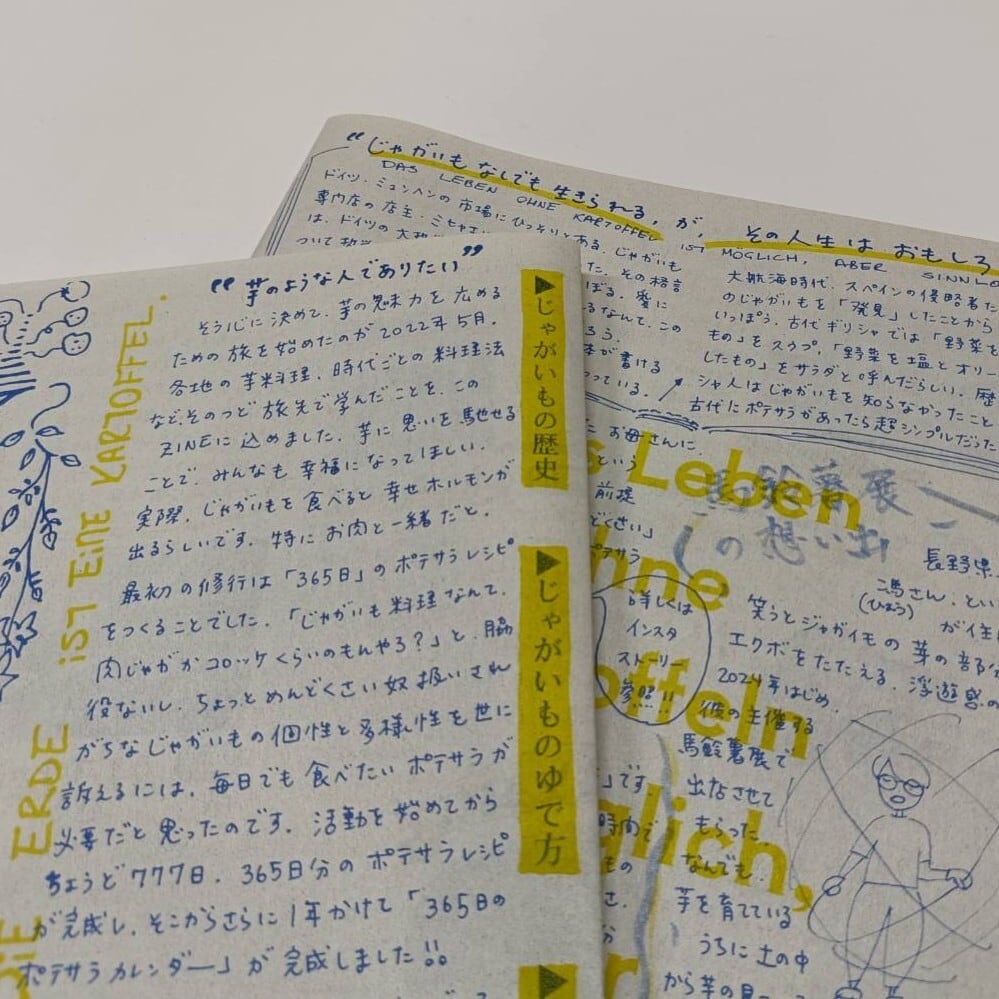 "芋のような人でありたい"
そう心に決めて、芋の魅力を広める
ための旅を始めたのが2022年5月。
各地の芋料理、時代ごとの料理法
など、そのつど旅先で学んだことを、この
ZINEに込めました。芋に思いを馳せる
ことで、みんなも幸福になってほしい。
実際、じゃがいもを食べると幸せホルモンが
出るらしいです。特にお肉と一緒だと。
最初の修行は「365日」のポテサラレシピ
をつくることでした。「じゃがいも料理なんて、
肉じゃがかコロッケくらいのもんやろ?」と、脇
役ないし、ちょっとめんどくさい奴扱いされ
がちなじゃがいもの個性と多様性を世に
訴えるには、毎日でも食べたいポテサラが
必要だと思ったのです。活動を始めてから
ちょうど777日、365日分のポテサラレシピ
が完成し、そこからさらに1年かけて「365日の
ポテサラカレンダー」が完成しました!!
▶じゃがいもの歴史
▶じゃがいものゆで方
▶
DIE ERDE IST EINE KARTOFFEL.
"じゃがいもなしでも生きられる、が、その人生はおもしろ
DAS LEBEN OHNE KARTOFFEL IST MÖGLICH, ABER SINNLO
ドイツ・ミュンヘンの市場にひっそりとある、じゃがいも
専門店の店主・ミセ
は、ドイツの大
ついて
その格言
ぼる。妻に
るなんて、この
ろう
が書ける
っている。
大航海時代、スペインの侵略者た
のじゃがいもを「発見」したことから
いっぽう、古代ギリシャでは「野菜を
もの」をスウプ、「野菜を塩とオリー
したもの」をサラダと呼んだらしい。歴
シャ人はじゃがいもを知らなかったこと
古代にポテサラがあったら超シンプルだった
お母さんに、
という
前提
どくさい」
ポテサラ
詳しくは
インスタ
ストーリー
参照!!
」です。
時間で
もの
さ、
か
s Leben
hne
offeln
glich,
r
馬鈴薯展
の想い出
長野県
馮さん、とい
(ひょう)
が住
笑うとジャガイモの芽の部分
エクボをたたえる、浮遊感の
2024年はじめ、
彼の主催する
馬鈴薯展で
出店させて
もらった。
なんでも、
芋を育てている
うちに土の中
から芋の